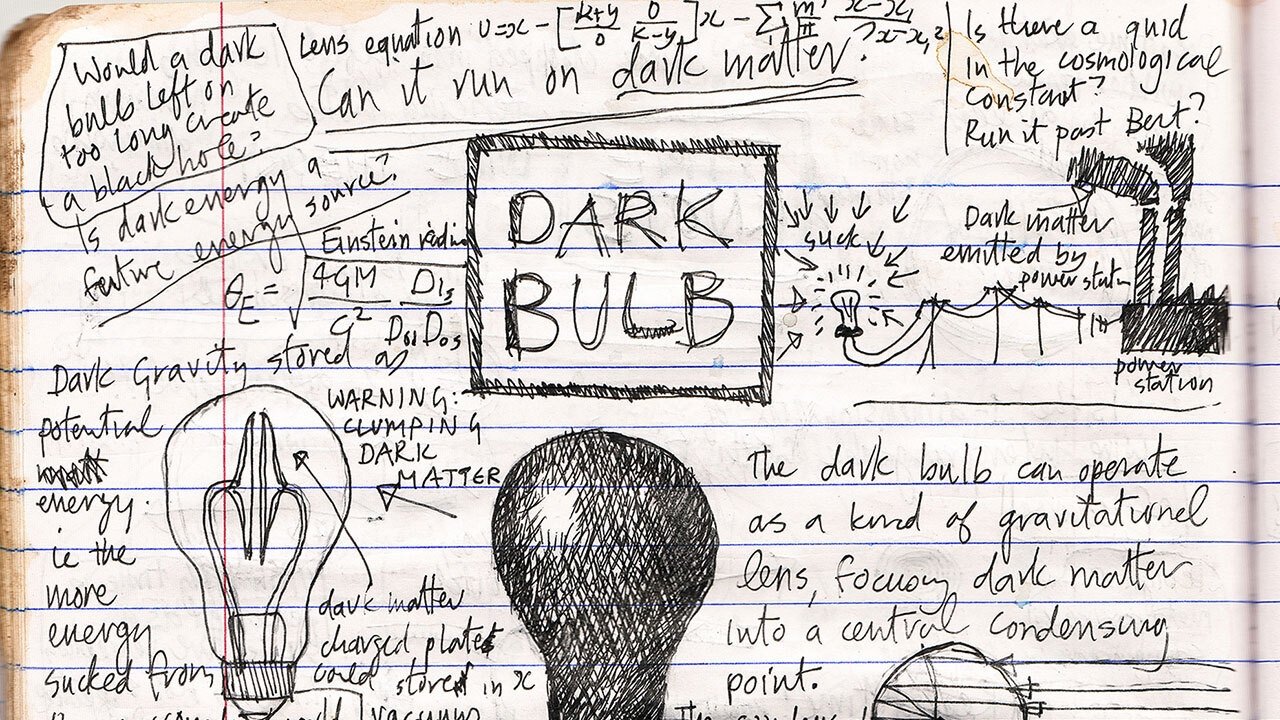 Would a dark
bulb left on
too long create
a black hole?
Lens equation
Can it run on dark matter?
Is there a quid
in the cosmological
constant?
Run it past Bert?
Is dark energy a
future energy source?
Einstein radius
θE = √ 4GM / C² Dls
DARK
BULB
suck
Dark matter
emitted by
power station
power
station
Dark Gravity stored as
potential
energy.
ie the
more
energy
sucked from
WARNING:
CLUMPING
DARK
MATTER
dark matter
charged plates
could stored in x
vacuum
The dark bulb can operate
as a kind of gravitational
lens, focusing dark matter
into a central condensing
point.